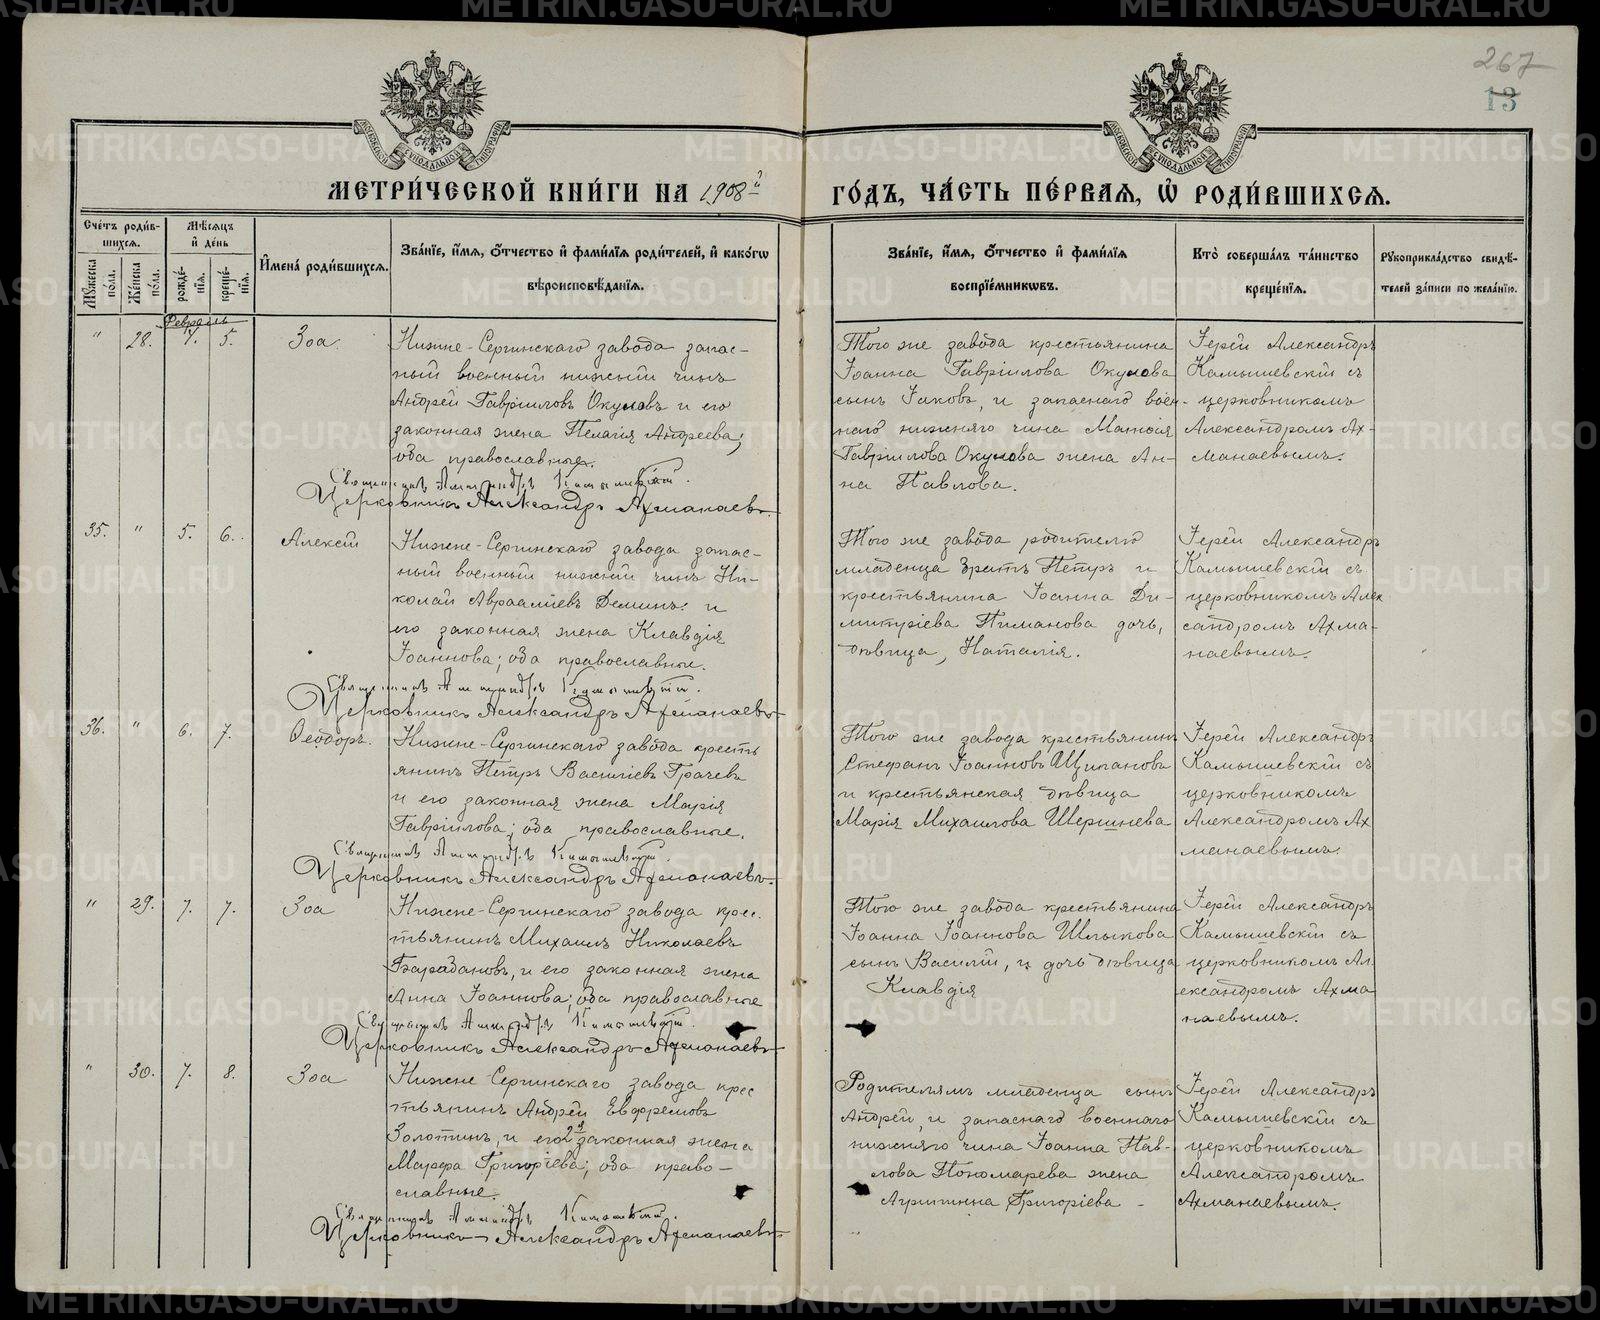 267
13
МОСКОВСКОЙ СѴНОДАЛЬНОЙ ТИПОГРАФІИ
МОСКОВСКОЙ СѴНОДАЛЬНОЙ ТИПОГРАФІИ
МЕТРИ́ЧЕСКОЙ КНИ́ГИ НА 1908й
ГО́ДЪ, ЧА́СТЬ ПЕ́РВАЯ, Ѿ РОДИ́ВШИХСЯ.
Сче́тъ роди́вшихся.
Мѣ́сяцъ и де́нь
Му́жеска по́ла.
Же́нска по́ла.
рожде́нія.
креще́нія.
И҆мена̀ роди́вшихся.
Зва́ніе, и҆́мя, ѻ҆́тчество и҆ фами́лїя роди́телей, и҆ како́гѡ
вѣроисповѣ́данія.
Зва́ніе, и҆́мя, ѻ҆́тчество и҆ фами́лїя
воспрїе́мникѡвъ.
Кто̀ соверша́лъ та́инство
креще́нїя.
Рукоприкла́дство свидѣ́-
телей за́писи по жела́нію.
Февраль
" 28. 4. 5. Зоа
Нижне-Сергинскаго завода запас-
ный военный нижній чинъ
Андрей Гавріиловъ Окуловъ и его
законная жена Пелагія Андреева;
оба православные.
Священникъ Александръ Камышевскій.
Церковникъ Александръ Ахманаевъ.
Того же завода крестьянина
Іоанна Гавріилова Окулова
сынъ Іаковъ, и запаснаго воен-
наго нижняго чина Матѳія
Гавріилова Окулова жена Ан-
на Павлова.
Іерей Александръ
Камышевскій съ
церковникомъ
Александромъ Ах-
манаевымъ.
35. " 5. 6. Алексій
Нижне-Сергинскаго завода запас-
ный военный нижній чинъ Ни-
колай Авраамїевъ Деминъ и
его законная жена Клавдія
Іоаннова; оба православные.
Священникъ Александръ Камышевскій.
Церковникъ Александръ Ахманаевъ
Того же завода родителю
младенца братъ Петръ и
крестьянина Іоанна Ди-
митріева Пиманова дочь,
дѣвица, Наталія.
Іерей Александръ
Камышевскій съ
церковникомъ Алек
сандромъ Ахма-
наевымъ.
36. " 6. 7. Ѳеодоръ.
Нижне-Сергинскаго завода кресть
янинъ Петръ Василіевъ Грачевъ
и его законная жена Марія
Гавріилова; оба православные.
Священникъ Александръ Камышевскій.
Церковникъ Александръ Ахманаевъ.
Того же завода крестьянинъ
Стефанъ Іоанновъ Щипановъ
и крестьянская дѣвица
Марія Михаилова Шершнева
Іерей Александръ
Камышевскій съ
церковникомъ
Александромъ Ах
манаевымъ.
" 29. 7. 7. Зоа
Нижне-Сергинскаго завода крес-
тьянинъ Михаилъ Николаевъ
Барабановъ, и его законная жена
Анна Іоаннова; оба православные
Священникъ Александръ Камышевскій.
Церковникъ Александръ Ахманаевъ
Того же завода крестьянина
Іоанна Іоаннова Шлыкова
сынъ Василій, и дочь дѣвица
Клавдія
Іерей Александръ
Камышевскій съ
церковникомъ Ал
ександромъ Ахма
наевымъ.
" 30. 7. 8. Зоа
Нижне Сергинскаго завода крес
тьянинъ Андрей Евфремовъ
Золотинъ, и его 2я законная жена
Марфа Григоріева; оба право-
славные.
Священникъ Александръ Камышевскій.
Церковникъ Александръ Ахманаевъ
Родителямъ младенца сынъ
Андрей, и запаснаго военнаго
нижняго чина Іоанна Пав-
лова Пономарева жена
Агриппина Григоріева -
Іерей Александръ
Камышевскій съ
церковникомъ
Александромъ
Ахманаевымъ.
METRIKI.GASO-URAL.RU